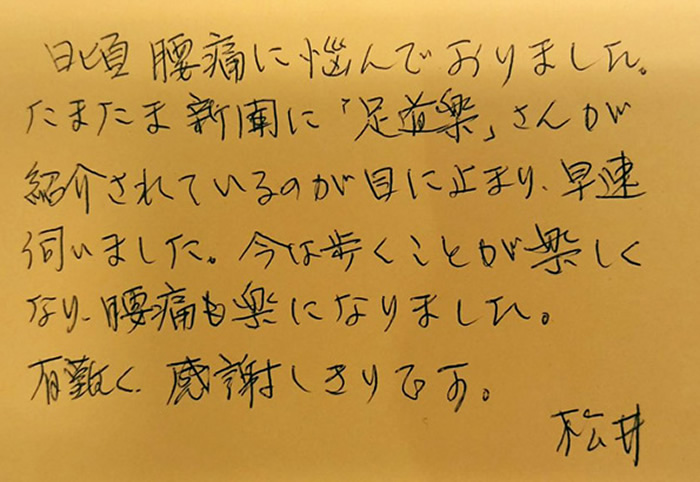 日頃腰痛に悩んでおりました。
たまたま新聞に「足道楽」さんが
紹介されているのが目に止まり、早速
伺いました。今は歩くことが楽しく
なり、腰痛も楽になりました。
有難く、感謝しきりです。
松井